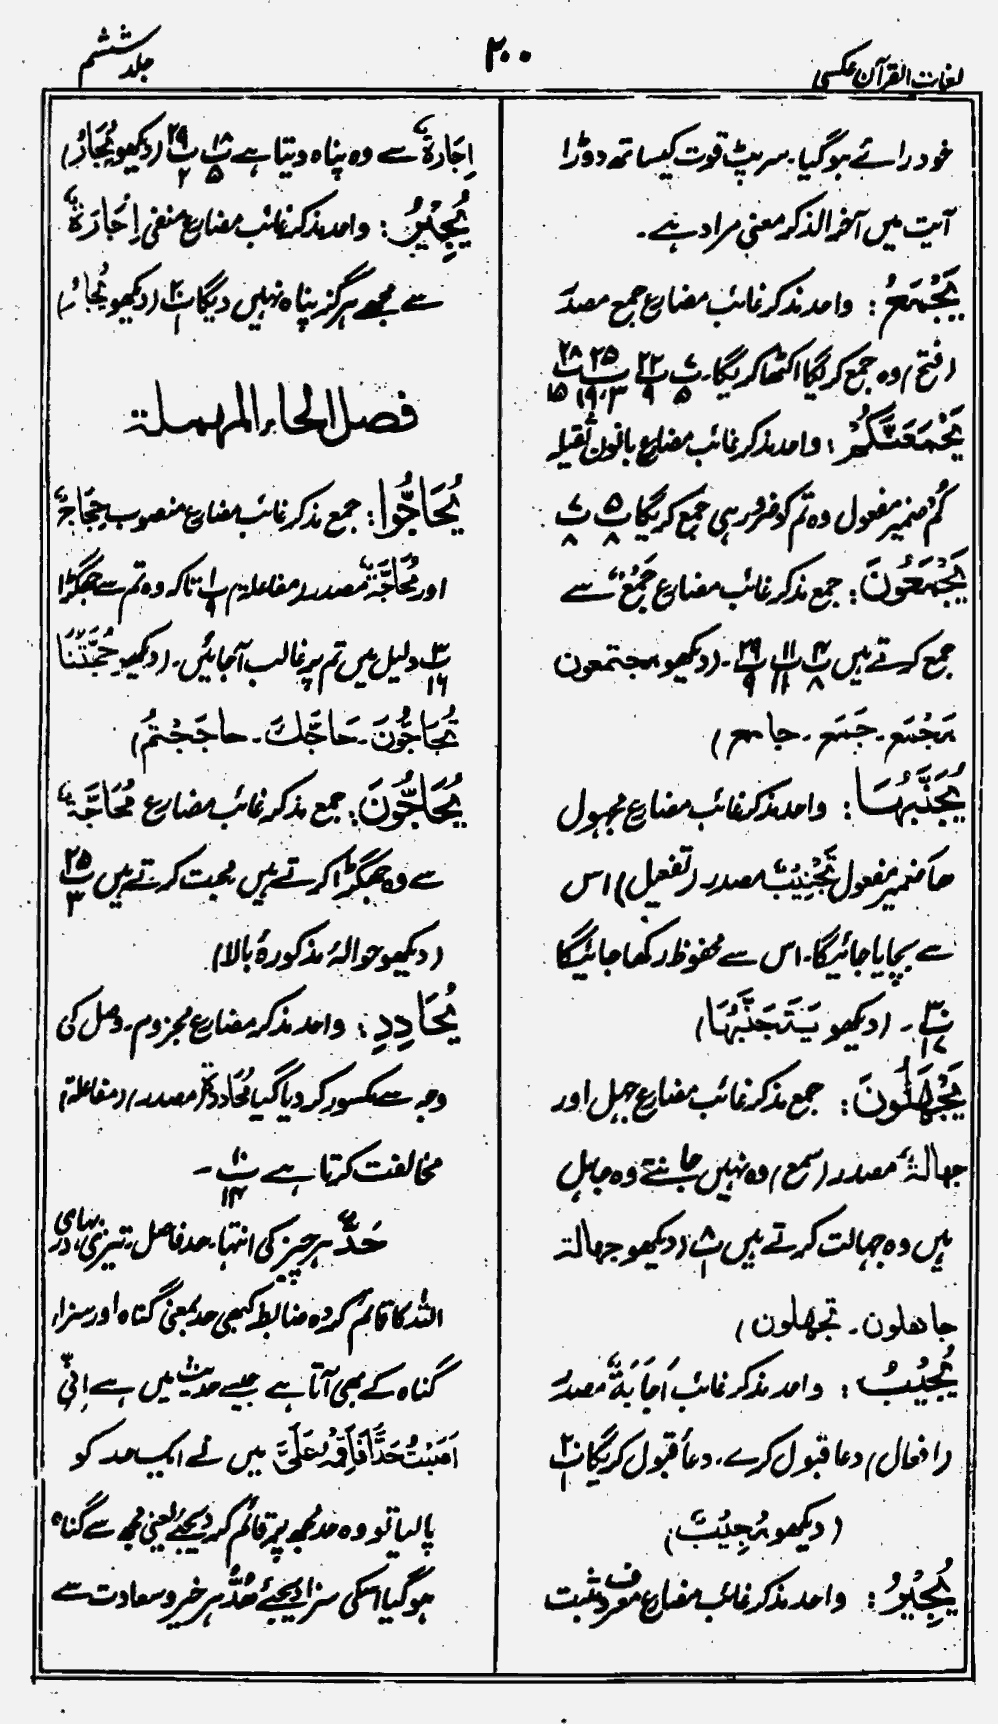 لغات القرآن عکسی
۲۰۰
جلد ششم
خود رائے ہو گیا۔ سرپٹ قوت کیساتھ دوڑا
آیت میں آخر الذکر معنی مراد ہے۔
يَجْمَعُ: واحد مذکر غائب مضارع جمع مصدر
(فتح) وہ جمع کریگا اکٹھا کریگا۔ پ۷/۵ پ۲۲/۹ پ۲۵/۳، ۱۹ پ۲۸/۱۵
يَجْمَعَنَّكُمْ: واحد مذکر غائب مضارع بانون ثقیلہ
كُمْ ضمیر مفعول وہ تم کو ضرور ہی جمع کریگا پ۵/۸ پ۷/۸
يَجْمَعُونَ: جمع مذکر غائب مضارع جَمْعٌ سے
جمع کرتے ہیں پ۴/۸ پ۱۱/۱۱ پ۲۹/۹۔ (دیکھو مجتمعون
مَجْمَع۔ جَمَع۔ جامع)
يُجَنَّبُهَا: واحد مذکر غائب مضارع مجہول
ھا ضمیر مفعول تَجْنِيْبٌ مصدر (تفعیل) اس
سے بچایا جائیگا۔ اس سے محفوظ رکھا جائیگا
پ۳۰/۱۷۔ (دیکھو يَتَجَنَّبُهَا)
يَجْهَلُونَ: جمع مذکر غائب مضارع جہل اور
جهالةٌ مصدر (سمع) وہ نہیں جانتے وہ جاہل
ہیں وہ جہالت کرتے ہیں پ۸/۱ (دیکھو جهالة
جاهلون۔ تجهلون)
يُجِيْبُ: واحد مذکر غائب اَجَابَةٌ مصدر
(افعال) دعا قبول کرے۔ دعا قبول کریگا پ۲۰/۱
(دیکھو مُجِيْبٌ)
يُجِيْرُ: واحد مذکر غائب مضارع معروف مثبت
اِجَارَةٌ سے وہ پناہ دیتا ہے پ۱۸/۵ پ۲۹/۲ (دیکھو يُجَارُ)
يُجِيْرُ: واحد مذکر غائب مضارع منفی اِجَارَةٌ
سے مجھے ہرگز پناہ نہیں دیگا پ۲۰/۱ (دیکھو يُجَارُ)
فصل الحاء المهملة
يُحَاجُّوا: جمع مذکر غائب مضارع منصوب حِجَاجٌ
اور مُحَاجَّةٌ مصدر (مفاعلۃ) پ۱/۹ تاکہ وہ تم سے جھگڑا
پ۳/۱۶ دلیل میں تم پر غالب آجائیں۔ (دیکھو حُجَّتُنَا
تُحَاجُّونَ۔ حَاجَّكَ۔ حاجَجْتُم)
يُحَاجُّونَ: جمع مذکر غائب مضارع مُحَاجَّةٌ
سے وہ جھگڑا کرتے ہیں بحث کرتے ہیں پ۲۵/۳
(دیکھو حوالۂ مذکورۂ بالا)
يُحَادِدِ: واحد مذکر مضارع مجزوم۔ وصل کی
وجہ سے مکسور کر دیا گیا مُحَادَدَةٌ (مصدر) (مفاعلۃ)
مخالفت کرتا ہے پ۱۰/۱۴۔
حَدٌّ ہر چیز کی انتہا۔ حد فاصل۔ تیزی،
اللہ کا قائم کردہ ضابطہ کبھی حد بمعنی گناہ اور سزاء
گناہ کے بھی آتا ہے جیسے حدیث میں ہے اِنِّي
اَصَبْتُ حَدًّا فَاَقِمْهُ عَلَيَّ میں نے ایک حد کو
پالیا تو وہ حد مجھ پر قائم کر دیجئے یعنی مجھ سے گناہ
ہو گیا اسکی سزا دیجئے حُدٌّ ہر خیر و سعادت سے